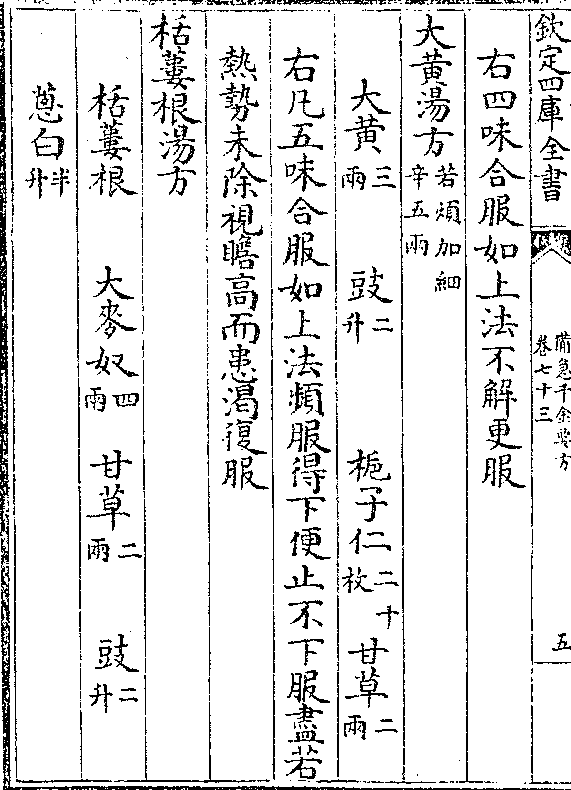 欽定四庫全書
備急千金要方
卷七十三
五
右四味合服如上法不解更服
大黃湯方若煩加細辛五兩
大黃三兩 豉二升 梔子仁二十枚 甘草二兩
右凡五味合服如上法頻服得下便止不下服盡若
熱勢未除視瞻高而患渴復服
栝蔞根湯方
栝蔞根 大麥奴四兩 甘草二兩 豉二升
蔥白半升